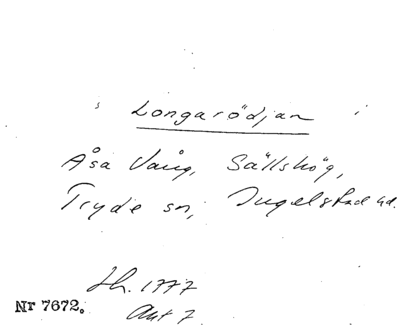 Longarödjan
Åsa Vång, Sällshög,
Tryde sn, Ingelstad hd.
Lh. 1777
Akt 7
Nr 7672.